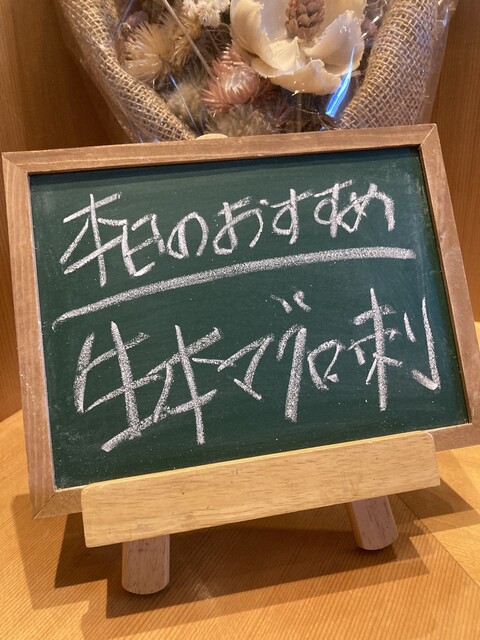 本日のおすすめ
生本マグロ刺